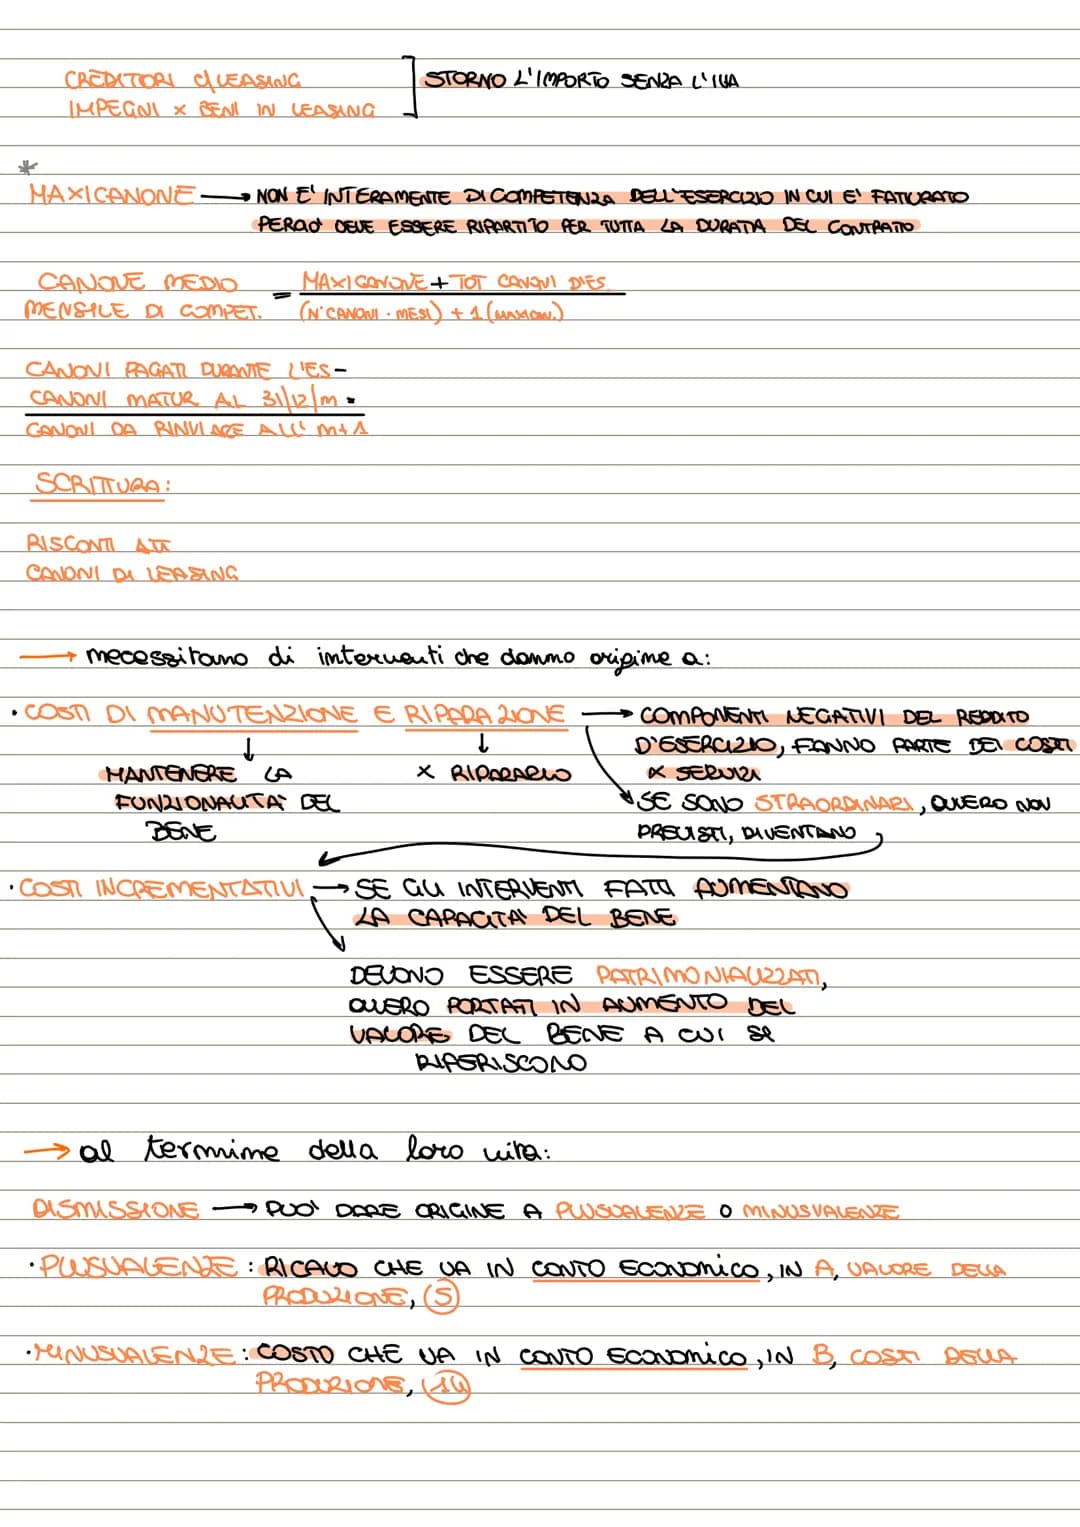 CREDITORI C/LEASING
IMPEGNI X BENI IN LEASING
STORNO L'IMPORTO SENZA L'IVA
*
MAXICANONE → NON E' INTERAMENTE DI COMPETENZA DELL'ESERCIZIO IN CUI E' FATTURATO
PERCIO' DEVE ESSERE RIPARTITO PER TUTTA LA DURATA DEL CONTRATTO
CANONE MEDIO
MENSILE DI COMPET.
=
MAXICANONE + TOT CANONI D'ES.
(N°CANONI · MESI) + 1 (MAXICAN.)
CANONI PAGATI DURANTE L'ES -
CANONI MATUR AL 31/12/m =
CANONI DA RINVIARE ALL' m+1
SCRITTURA:
RISCONTI ATT
CANONI DI LEASING
→ necessitano di interventi che danno origine a:
• COSTI DI MANUTENZIONE E RIPARAZIONE → COMPONENTI NEGATIVI DEL REDDITO
D'ESERCIZIO, FANNO PARTE DEI COSTI
MANTENERE LA
FUNZIONALITA' DEL
BENE
X RIPARARLO
X SERVIZI
SE SONO STRAORDINARI, OVVERO NON
PREVISTI, DIVENTANO
• COSTI INCREMENTATIVI → SE GLI INTERVENTI FATTI AUMENTANO
LA CAPACITA' DEL BENE
DEVONO ESSERE PATRIMONIALIZZATI,
OVVERO PORTATI IN AUMENTO DEL
VALORE DEL BENE A CUI SI
RIFERISCONO
→ al termine della loro vita:
DISMISSIONE → PUO' DARE ORIGINE A PLUSVALENZE O MINUSVALENZE
• PLUSVALENZE: RICAVO CHE VA IN CONTO ECONOMICO, IN A, VALORE DELLA
PRODUZIONE, (5)
• MINUSVALENZE: COSTO CHE VA IN CONTO ECONOMICO, IN B, COSTI DELLA
PRODUZIONE, (14)